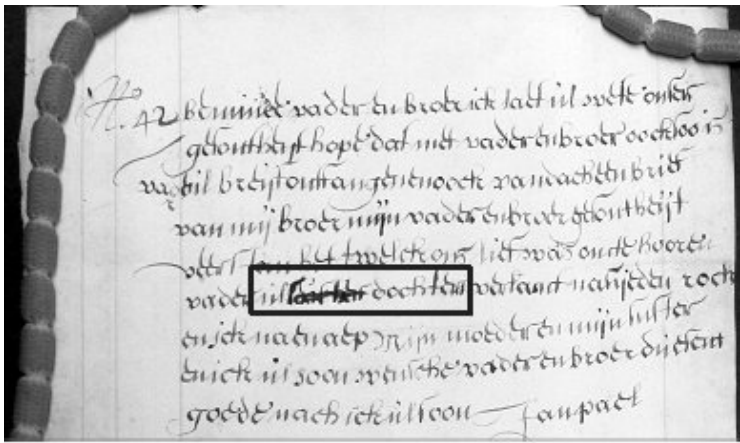 No. 42 beminde vader en broer ick laet ul wete onsen
gesontheyt hope dat met vader en broer oock soo is
vader ul breif ontfangen en oock vandach een brief
van mijn broer mijn vader en broer gesontheijt
verstaen het twelck ons lief was om te hooren
vader ul dochteren verlanct na rock
en ick na een aep mijn moeder en mijn suster
en ick ul soon wensche vader en broer
goede nach ick ul soon Jan pael